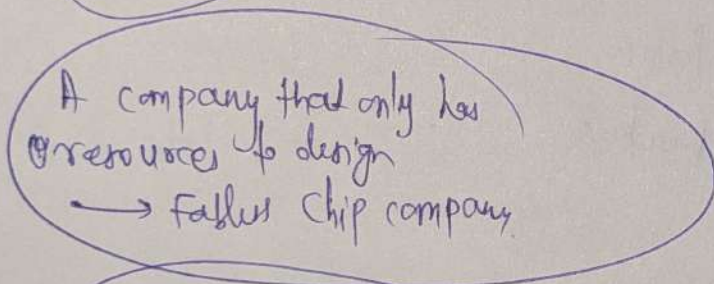 A company that only has
resources to design
→ Fabless Chip company.